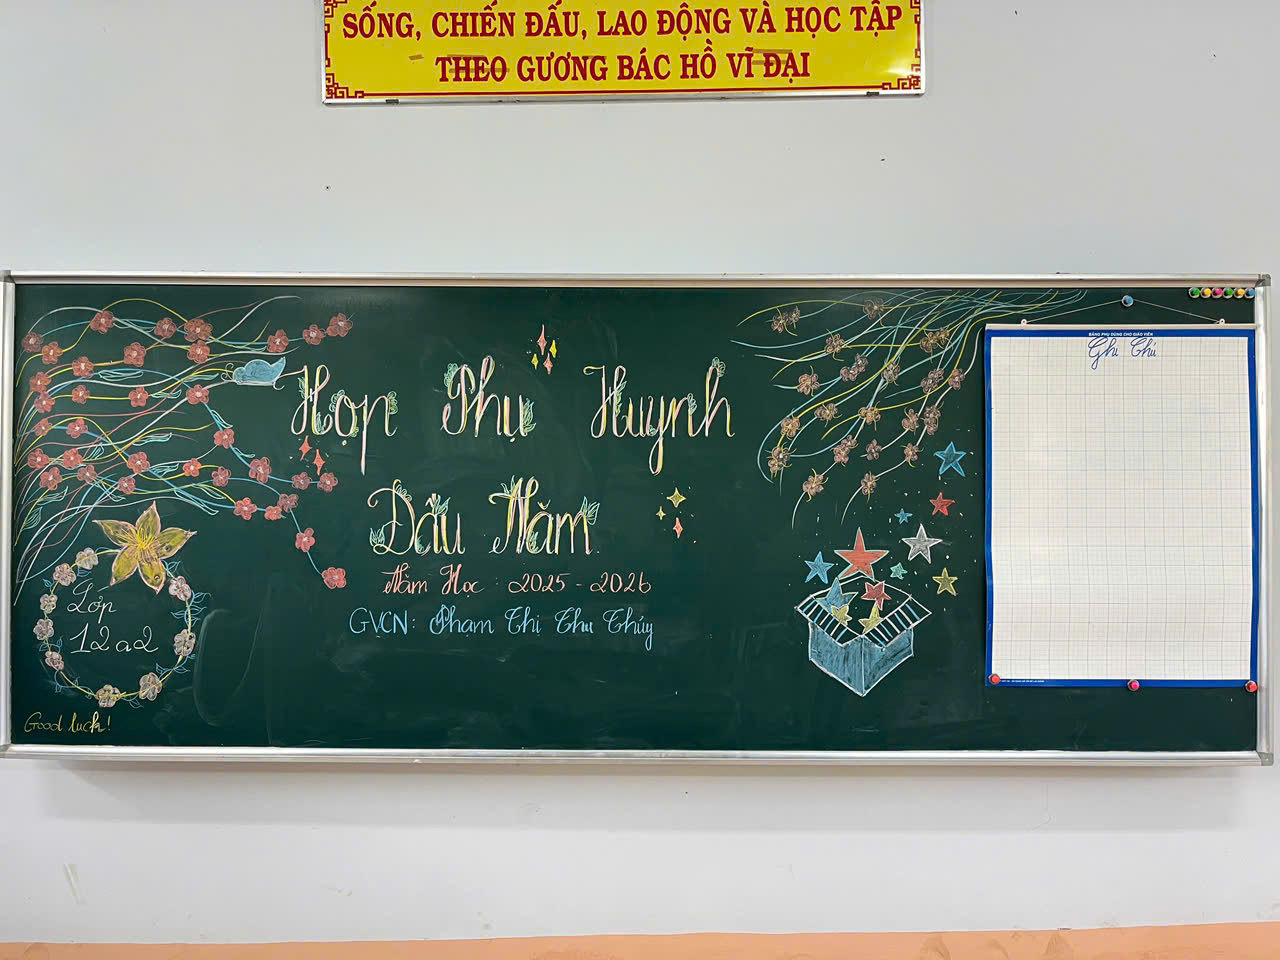 SỐNG, CHIẾN ĐẤU, LAO ĐỘNG VÀ HỌC TẬP
THEO GƯƠNG BÁC HỒ VĨ ĐẠI
Họp Phụ Huynh
Đầu Năm
Năm Học : 2025 - 2026
GVCN: Phạm Thi Thu Thúy
Lớp
12a2
Good luck!
BẢNG PHỤ DÙNG CHO GIÁO VIÊN
Ghi Chú